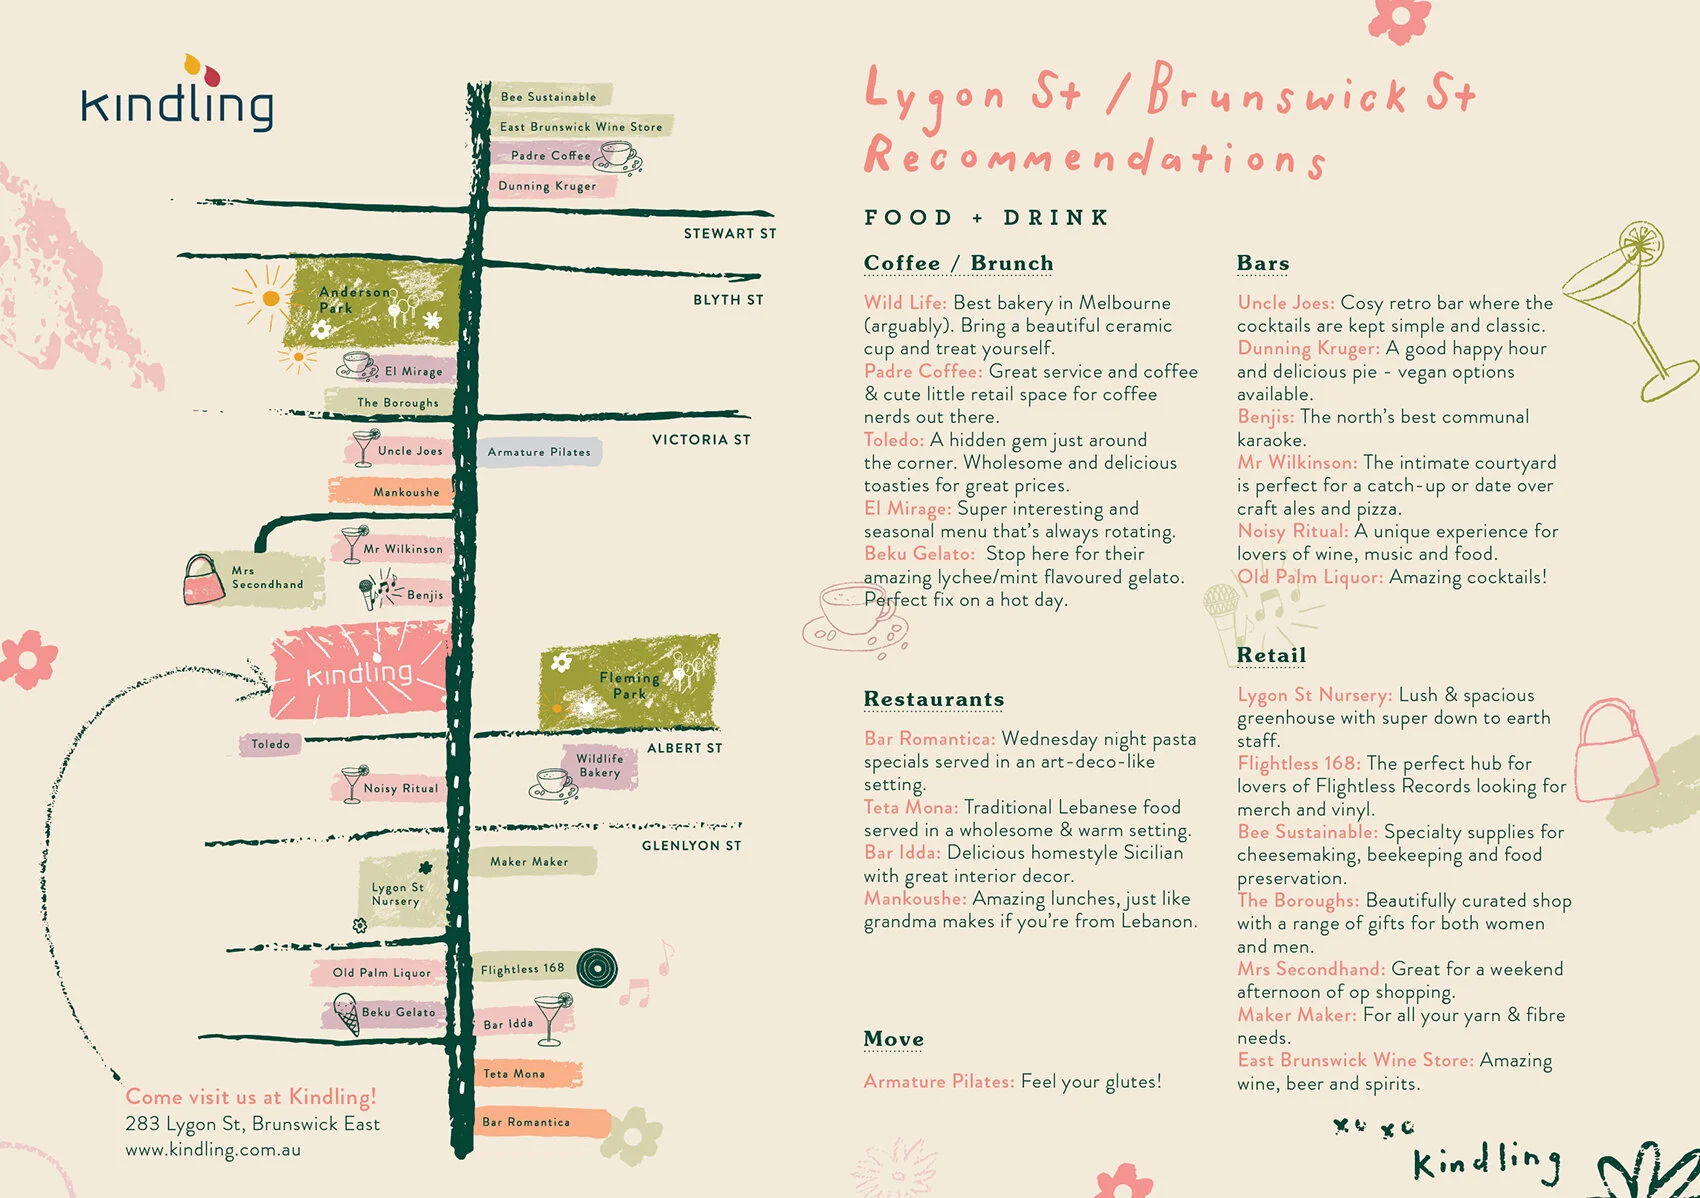 kindling
Bee Sustainable
East Brunswick Wine Store
Padre Coffee
Dunning Kruger
STEWART ST
BLYTH ST
Anderson
Park
El Mirage
The Boroughs
VICTORIA ST
Uncle Joes
Armature Pilates
Mankoushe
Mr Wilkinson
Mrs
Secondhand
Benjis
kindling
Fleming
Park
Toledo
ALBERT ST
Wildlife
Bakery
Noisy Ritual
GLENLYON ST
Maker Maker
Lygon St
Nursery
Old Palm Liquor
Flightless 168
Beku Gelato
Bar Idda
Teta Mona
Bar Romantica
Come visit us at Kindling!
283 Lygon St, Brunswick East
www.kindling.com.au
Lygon St / Brunswick St
Recommendations
FOOD + DRINK
Coffee / Brunch
Wild Life: Best bakery in Melbourne
(arguably). Bring a beautiful ceramic
cup and treat yourself.
Padre Coffee: Great service and coffee
& cute little retail space for coffee
nerds out there.
Toledo: A hidden gem just around
the corner. Wholesome and delicious
toasties for great prices.
El Mirage: Super interesting and
seasonal menu that's always rotating.
Beku Gelato: Stop here for their
amazing lychee/mint flavoured gelato.
Perfect fix on a hot day.
Restaurants
Bar Romantica: Wednesday night pasta
specials served in an art-deco-like
setting.
Teta Mona: Traditional Lebanese food
served in a wholesome & warm setting.
Bar Idda: Delicious homestyle Sicilian
with great interior decor.
Mankoushe: Amazing lunches, just like
grandma makes if you're from Lebanon.
Move
Armature Pilates: Feel your glutes!
Bars
Uncle Joes: Cosy retro bar where the
cocktails are kept simple and classic.
Dunning Kruger: A good happy hour
and delicious pie - vegan options
available.
Benjis: The north's best communal
karaoke.
Mr Wilkinson: The intimate courtyard
is perfect for a catch-up or date over
craft ales and pizza.
Noisy Ritual: A unique experience for
lovers of wine, music and food.
Old Palm Liquor: Amazing cocktails!
Retail
Lygon St Nursery: Lush & spacious
greenhouse with super down to earth
staff.
Flightless 168: The perfect hub for
lovers of Flightless Records looking for
merch and vinyl.
Bee Sustainable: Specialty supplies for
cheesemaking, beekeeping and food
preservation.
The Boroughs: Beautifully curated shop
with a range of gifts for both women
and men.
Mrs Secondhand: Great for a weekend
afternoon of op shopping.
Maker Maker: For all your yarn & fibre
needs.
East Brunswick Wine Store: Amazing
wine, beer and spirits.
xo xo
Kindling